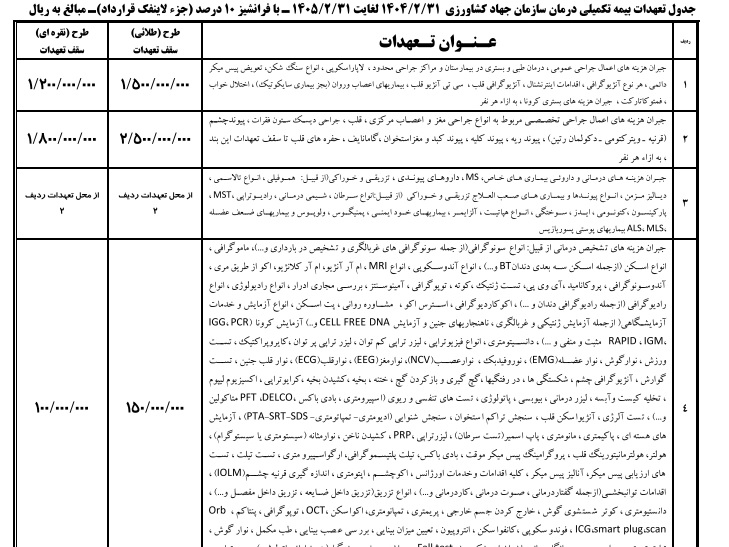 جدول تعهدات بیمه تکمیلی درمان سازمان جهاد کشاورزی ۱۴۰۴/۲/۳۱ لغایت ۱۴۰۵/۲/۳۱ ــ با فرانشیز ۱۰ درصد (جزء لاینفک قرارداد)ــ مبالغ به ریال
ردیف
عنـــوان تـــعهدات
طرح (طلائی)
سقف تعهدات
طرح (نقره ای)
سقف تعهدات
۱
جبران هزینه های اعمال جراحی عمومی ، درمان طبی و بستری در بیمارستان و مراکز جراحی محدود ، لاپاراسکوپی ، انواع سنگ شکن، تعویض پیس میکر
دائمی ، هر نوع آنژیوگرافی ، اقدامات اینترنشنال ، آنژیوگرافی قلب ، سی تی آنژیو قلب ، بیماریهای اعصاب وروان (بجز بیماری سایکوتیک) ، اختلال خواب
، فمتوکاتارکت ، جبران هزینه های بستری کرونا ، به ازاء هر نفر
۱/۵۰۰/۰۰۰/۰۰۰
۱/۲۰۰/۰۰۰/۰۰۰
۲
جبران هزینه های اعمال جراحی تخصصصی مربوط به انواع جراحی مغز و اعصاب مرکزی ، قلب ، جراحی دیسک ستون فقرات ، پیوندچشم
(قرنیه - ویترکتومی - دکولمان رتین) ، پیوند ریه ، پیوند کلیه ، پیوند کبد و مغزاستخوان،گامانایف ، حفره های قلب تا سقف تعهدات این بند
، به ازاء هر نفر
۲/۵۰۰/۰۰۰/۰۰۰
۱/۸۰۰/۰۰۰/۰۰۰
۳
جبران هزینه های درمانی و داروئی بیماری های خاص، MS، داروهای پیوندی ، تزریقی و خوراکی(از قبیل: هموفیلی ، انواع تالاسمی ،
دیالیز مزمن ، انواع پیوندها و بیماری های صعب العلاج تزریقی و خوراکی (از قبیل:انواع سرطان ، شیمی درمانی ، رادیوتراپی ،MST،
پارکینسون ،کتونومی ، ایدز ، سوختگی ، انواع هپاتیت ، آلزایمر ، بیماریهای خود ایمنی ، پمفیگوس ، ولوپوس و بیماریهای ضعف عضله
ALS ،MLS، بیماریهای پوستی پسوریازیس
از محل تعهدات ردیف
۲
از محل تعهدات ردیف
۲
۴
جبران هزینه های تشخیص درمانی از قبیل: انواع سونوگرافی(از جمله سونوگرافی های غربالگری و تشخیص در بارداری و...)، ماموگرافی ،
انواع اسکن (ازجمله اسکن سه بعدی دندانBT و...) ، انواع آندوسکوپی ، انواع MRI ، ام آر آنژیو، ام آر کلانژیو، اکو از طریق مری ،
آندوسونوگرافی ، پروکانامید، آی وی پی، تست ژنتیک ،کوته ، توپوگرافی ، آمینوسنتز ، بررسی مجاری ادرار ، انواع رادیولوژی ، انواع
رادیوگرافی (ازجمله رادیوگرافی دندان و ...) ، اکوکاردیوگرافی ، استرس اکو ، مشاوره روانی ، پت اسکن ، انواع آزمایش و خدمات
آزمایشگاهی( ازجمله آزمایش ژنتیکی و غربالگری ، ناهنجاریهای جنین و آزمایش CELL FREE DNA و..) آزمایش کرونا (IGG،PCR
،IGM، RAPID مثبت و منفی و ...) ، دانسیتومتری ، انواع فیزیوتراپی ، لیزر تراپی کم توان ، لیزر تراپی پر توان ،کایروپراکتیک ، تست
ورزش ، نوارگوش ، نوار عضله(EMG) ، نوروفیدبک ، نوارعصب(NCV)، نوارمغز(EEG) ، نوارقلب(ECG) ، نوار قلب جنین ، تست
گوارش ، آنژیوگرافی چشم ، شکستگی ها ، در رفتگیها ، گچ گیری و بازکردن گچ ، ختنه ، بخیه ، کشیدن بخیه ، کرایوتراپی ، اکسیزیوم لیپوم
، تخلیه کیست وآبسه ، لیزر درمانی ، بیوپسی ، پاتولوژی ، تست های تنفسی و ریوی (اسپیرومتری ، بادی باکس ،PFT ،DELCO متاکولین
و...) ، تست آلرژی ، آنژیواسکن قلب ، سنجش تراکم استخوان ، سنجش شنوایی (ادیومتری- تمپانومتری- PTA-SRT-SDS) ، آزمایش
های هسته ای ، پاکیمتری ، مانومتری ، پاپ اسمیر(تست سرطان) ، لیزرتراپی ،PRP ، کشیدن ناخن ، نوارمثانه (سیستومتری یا سیستوگرام) ،
هولتر، هولترمانیتورینگ قلب ، پروگرامینگ پیس میکر موقت ، بادی باکس، تیلت پلتیسموگرافی، ارگواسپیرو متری ، تست تیلت ، تست
های ارزیابی پیس میکر، آنالیز پیس میکر ، کلیه اقدامات وخدمات اورژانس ، اکوچشم ، اپتومتری ، اندازه گیری قرنیه چشم(IOLM) ،
اقدامات توانبخشی(ازجمله گفتاردرمانی ، صوت درمانی ،کاردرمانی و...) ، انواع تزریق(تزریق داخل ضایعه ، تزریق داخل مفصل و...) ،
دانسیتومتری ، کوتر شستشوی گوش ، خارج کردن جسم خارجی ، پریمتری ، تمپانومتری، اکواسکن ،OCT، توپوگرافی ، پنتاکم ، Orb
ICG،smart plug،scan ، فوندوسکوپی ، کانفواسکن ، انتروپیون ، تعیین میزان بینایی ، بررسی عصب بینایی ، طب مکمل ، نوار گوش ،
۱۵۰/۰۰۰/۰۰۰
۱۰۰/۰۰۰/۰۰۰